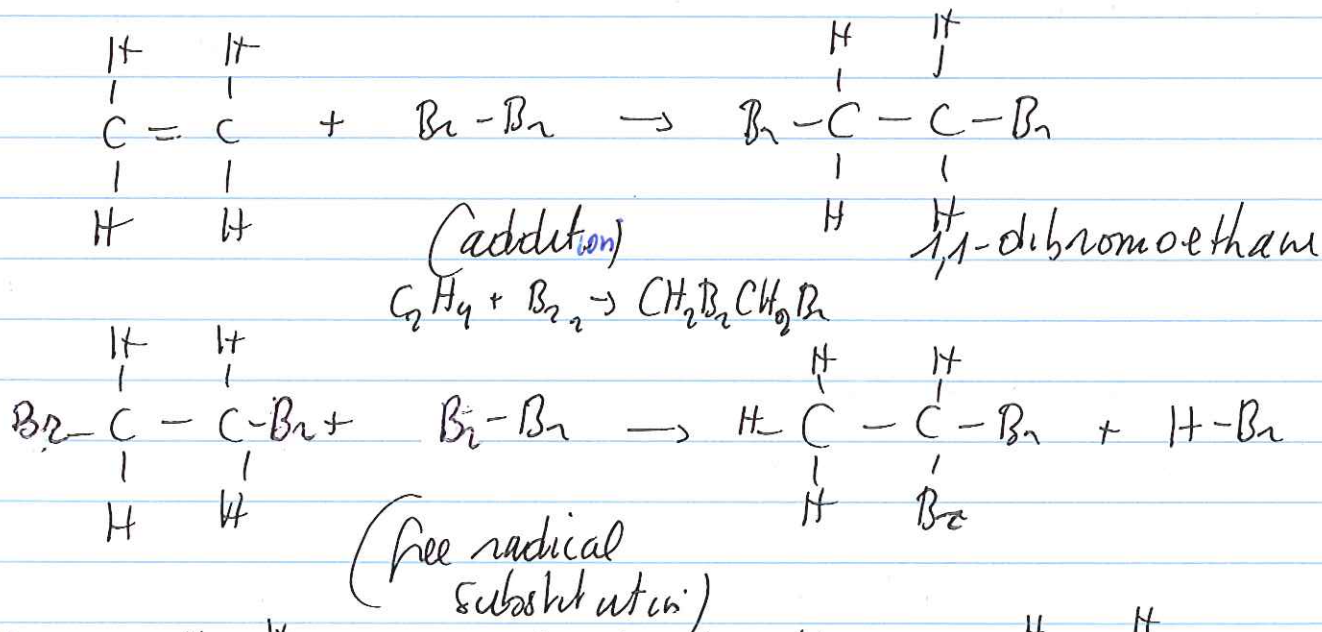 H H H H
C = C + Br - Br → Br - C - C - Br
H H H H
(addition) 1,1-dibromoethane
C2H4 + Br2 → CH2BrCH2Br
H H H H
Br - C - C - Br + Br - Br → H - C - C - Br + H - Br
H H H Br
(free radical
substitution)
H H H